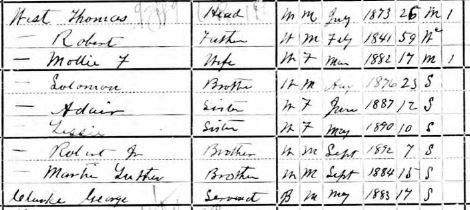 West Thomas Head W M July 1873 26 M 1
— Robert Father W M Feby 1841 59 Wd
— Mollie F Wife W F Mar 1882 17 M 1
— Solomon Brother W M Aug 1876 23 S
— Adair Sister W F June 1887 12 S
— Lessie Sister W F May 1890 10 S
— Robert Jr Brother W M Sept 1892 7 S
— Martin Luther Brother W M Sept 1884 15 S
George Servant B M May 1883 17 S